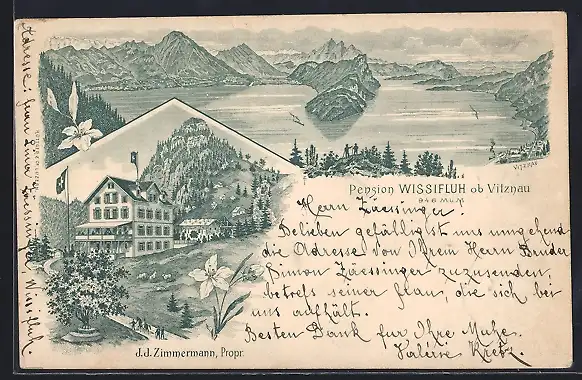 VITZNAU
Pension WISSIFLUH ob Vitznau
946 M.ü.M.
Herrn Zäessinger!
Belieben gefälligst uns umgehend
die Adresse von Ihrem Herrn Bruder
Simon Zäessinger zuzusenden,
betrefs seiner Frau, die sich bei
uns aufhält.
Besten Dank für Ihre Mühe.
Valérie Kretz.
J.d. Zimmermann, Propr.
Adresse: Frau Simon Zaessinger, Wissifluh.